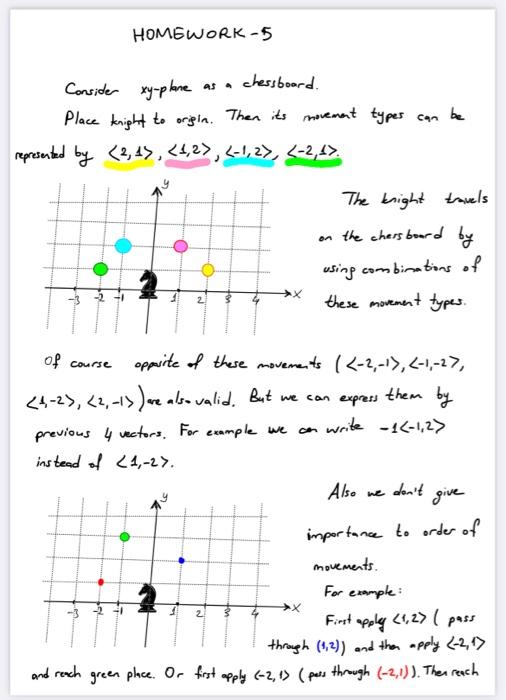 HOMEWORK-5
Consider xy-plane as a chessboard.
Place knight to origin. Then its movement types can be
represented by <2,1>, <1,2>, <-1,2>, <-2,1>.
y
-3 -2 -1 1 2 3 4 x
The knight travels
on the chessboard by
using combinations of
these movement types.
Of course opposite of these movements (<-2,-1>, <-1,-2>,
<1,-2>, <2,-1>) are also valid. But we can express them by
previous 4 vectors. For example we can write -1<-1,2>
instead of <1,-2>.
y
-3 -2 -1 1 2 3 4 x
Also we don't give
importance to order of
movements.
For example:
First apply <1,2> (pass
through (1,2)) and then apply <-2,1>
and reach green place. Or first apply <-2,1> (pass through (-2,1)). Then reach